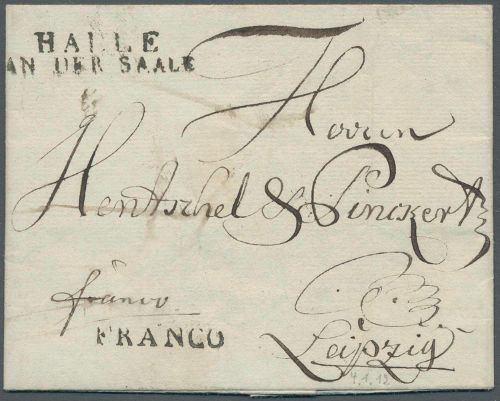 HALLE
AN DER SAALE
Herren
Hentschel & Pinckert
franco
FRANCO
Leipzig
4.1.12